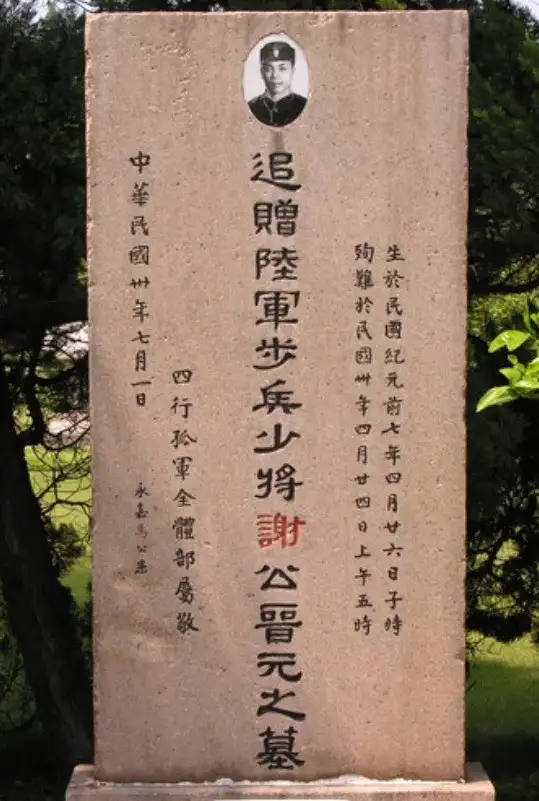 生於民國紀元前七年四月廿六日子時
殉難於民國卅年四月廿四日上午五時
追贈陸軍步兵少將謝公晉元之墓
四行孤軍全體部屬敬
中華民國卅年七月一日
永嘉馬公愚